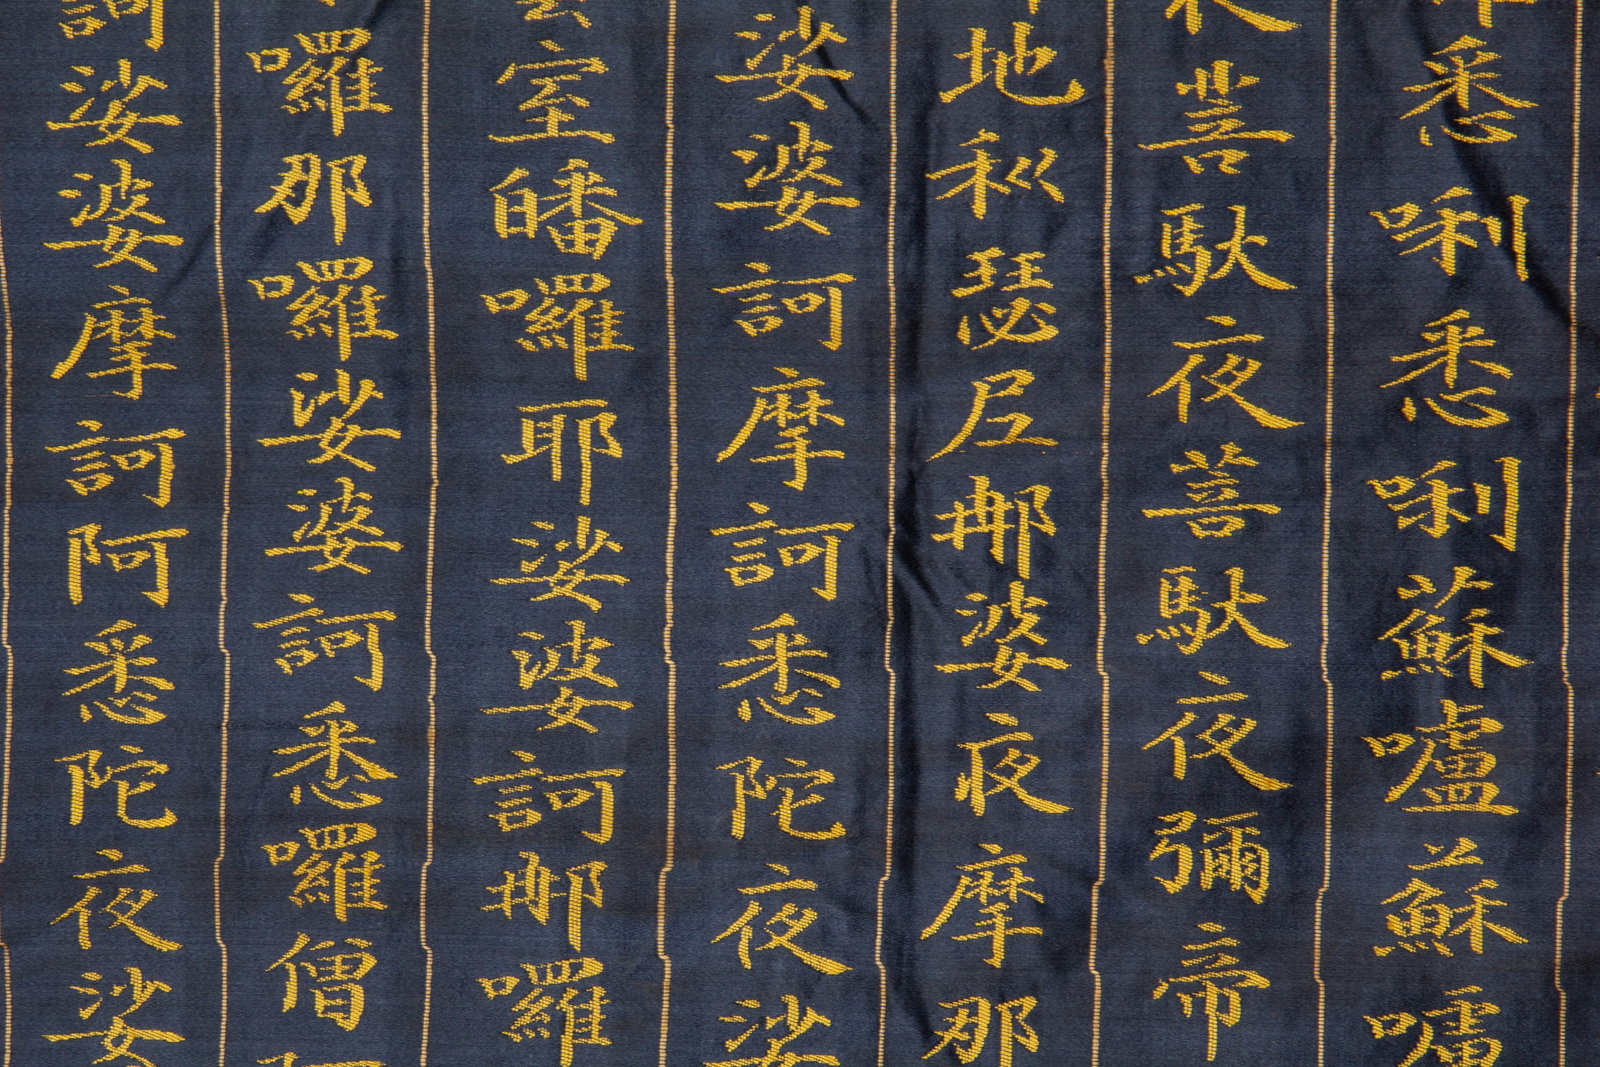 悉唎悉唎蘇嚧蘇嚧
菩馱夜菩馱夜彌帝
地𥝢瑟尼那婆夜摩那
娑婆訶摩訶悉陀夜娑
室皤囉耶娑婆訶那囉
囉那囉娑婆訶悉囉僧
訶娑婆摩訶阿悉陀夜娑